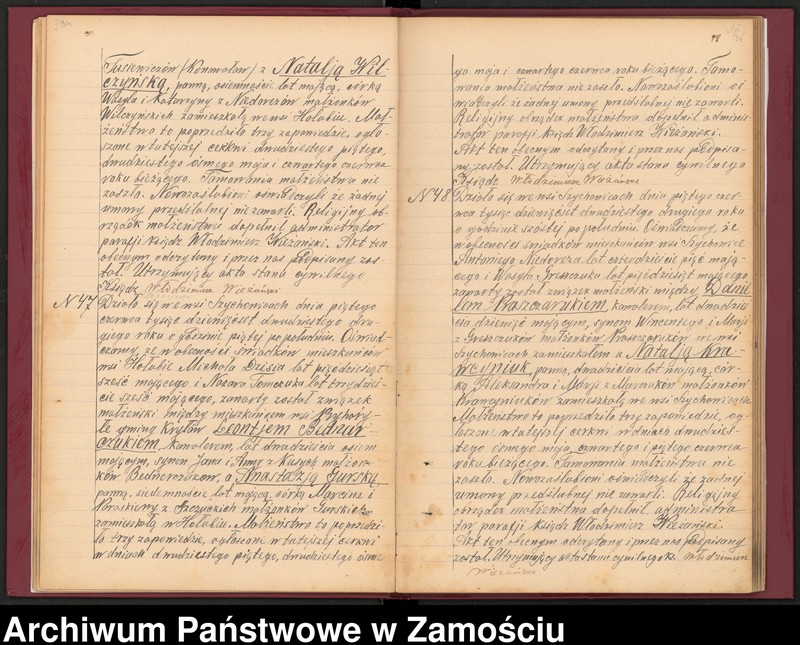 Tusieniczów (Konmoław) z Natalją Wil-
czyńską, panną, osiemnaście lat mającą, córką
Wasyla i Katarzyny z Niedorezów małżonków
Wilczyńskich zamieszkałą we wsi Hołubiu. Mał
żeństwo to poprzedziło trzy zapowiedzie, ogło
szone w tutejszej cerkwi dwudziestego piątego,
dwudziestego ósmego maja i czwartego czerwca
roku bieżącego. Tamowania małżeństwa nie
zaszło. Nowozaślubieni oświadczyli że żadnej
umowy przedślubnej nie zawarli. Religijny ob-
rządek małżeństwa dopełnił administrator
parafji Ksiądz Włodzimierz Wieżański. Akt ten
obecnym odczytany i przez nas podpisany zos-
tał. Utrzymujący akta stanu cywilnego
Ksiądz Włodzimierz Wieżański
N 47 Działo się we wsi Szychowicach dnia piątego
czerwca tysiąc dziewięćset dwudziestego dru-
giego roku o godzinie piątej po południu. Oświad
czamy, że w obecności świadków mieszkańców
wsi Hołubie Michała Dzisia lat pięćdziesiąt
sześć mającego i Nazara Tomczuka lat trzydzieś-
cie sześć mającego, zawarty został związek
małżeński między mieszkańcem wsi
gminy Kryłów Leontjem Bednar-
czukiem, kawalerem, lat dwadzieścia osiem
mającym, synem Jana i Anny z małżon-
ków Bednarczuków, a Anastazją Gurską,
panną, siedemnaście lat mającą, córką Marcina i
Paraskiewy z małżonków Gurskich
zamieszkałą w Hołubiu. Małżeństwo to poprzedzi
ło trzy zapowiedzie, ogłoszone w tutejszej cerkwi
w dniach dwudziestego piątego, dwudziestego ósme
go maja i czwartego czerwca roku bieżącego. Tamo-
wania małżeństwa nie zaszło. Nowozaślubieni oś
wiadczyli że żadnej umowy przedślubnej nie zawarli.
Religijny obrządek małżeństwa dopełnił adminis-
trator parafji Ksiądz Włodzimierz Wieżański.
Akt ten obecnym odczytany i przez nas podpisa-
ny został. Utrzymujący akta stanu cywilnego
Ksiądz Włodzimierz Wieżański
N 48 Działo się we wsi Szychowicach dnia piątego czer
wca tysiąc dziewięćset dwudziestego drugiego roku
o godzinie szóstej po południu. Oświadczamy, że
w obecności świadków mieszkańców wsi Szychowice
Antoniego Niedoreza lat czterdzieście pięć mają-
cego i Wasyla Greszczuka lat pięćdziesiąt mającego,
zawarty został związek małżeński między Dani
łem Waszczukiem, kawalerem, lat dwadzieś
cia dziewięć mającym, synem Wincentego i Marji
z Greszczuków małżonków we wsi
Szychowicach zamieszkałem a Natalją Kra-
wcyniuk, panną, dwadzieścia lat mającą, cór-
ką Aleksandra i Marji z Mazurków małżonków
Krawcyniuków zamieszkałą we wsi Szychowicach
Małżeństwo to poprzedziło trzy zapowiedzie, og-
łoszone w tutejszej cerkwi w dniach dwudzies-
tego ósmego maja, czwartego i piątego czerwca
roku bieżącego. Tamowania małżeństwa nie
zaszło. Nowozaślubieni oświadczyli że żadnej
umowy przedślubnej nie zawarli. Religijny
obrządek małżeństwa dopełnił administra-
tor parafji Ksiądz Włodzimierz Wieżański.
Akt ten obecnym odczytany i przez nas podpisany
został. Utrzymujący akta stanu cywilnego K. Włodzimierz
Wieżański
Archiwum Państwowe w Zamościu